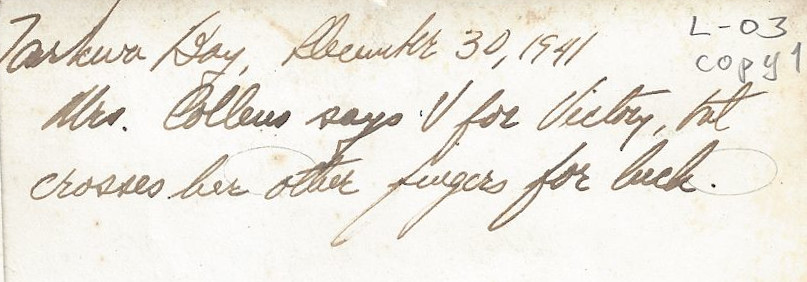 Tarkwa Bay, December 30, 1941
L-03
copy 1
Mrs. Collens says V for Victory, but
crosses her other fingers for luck.